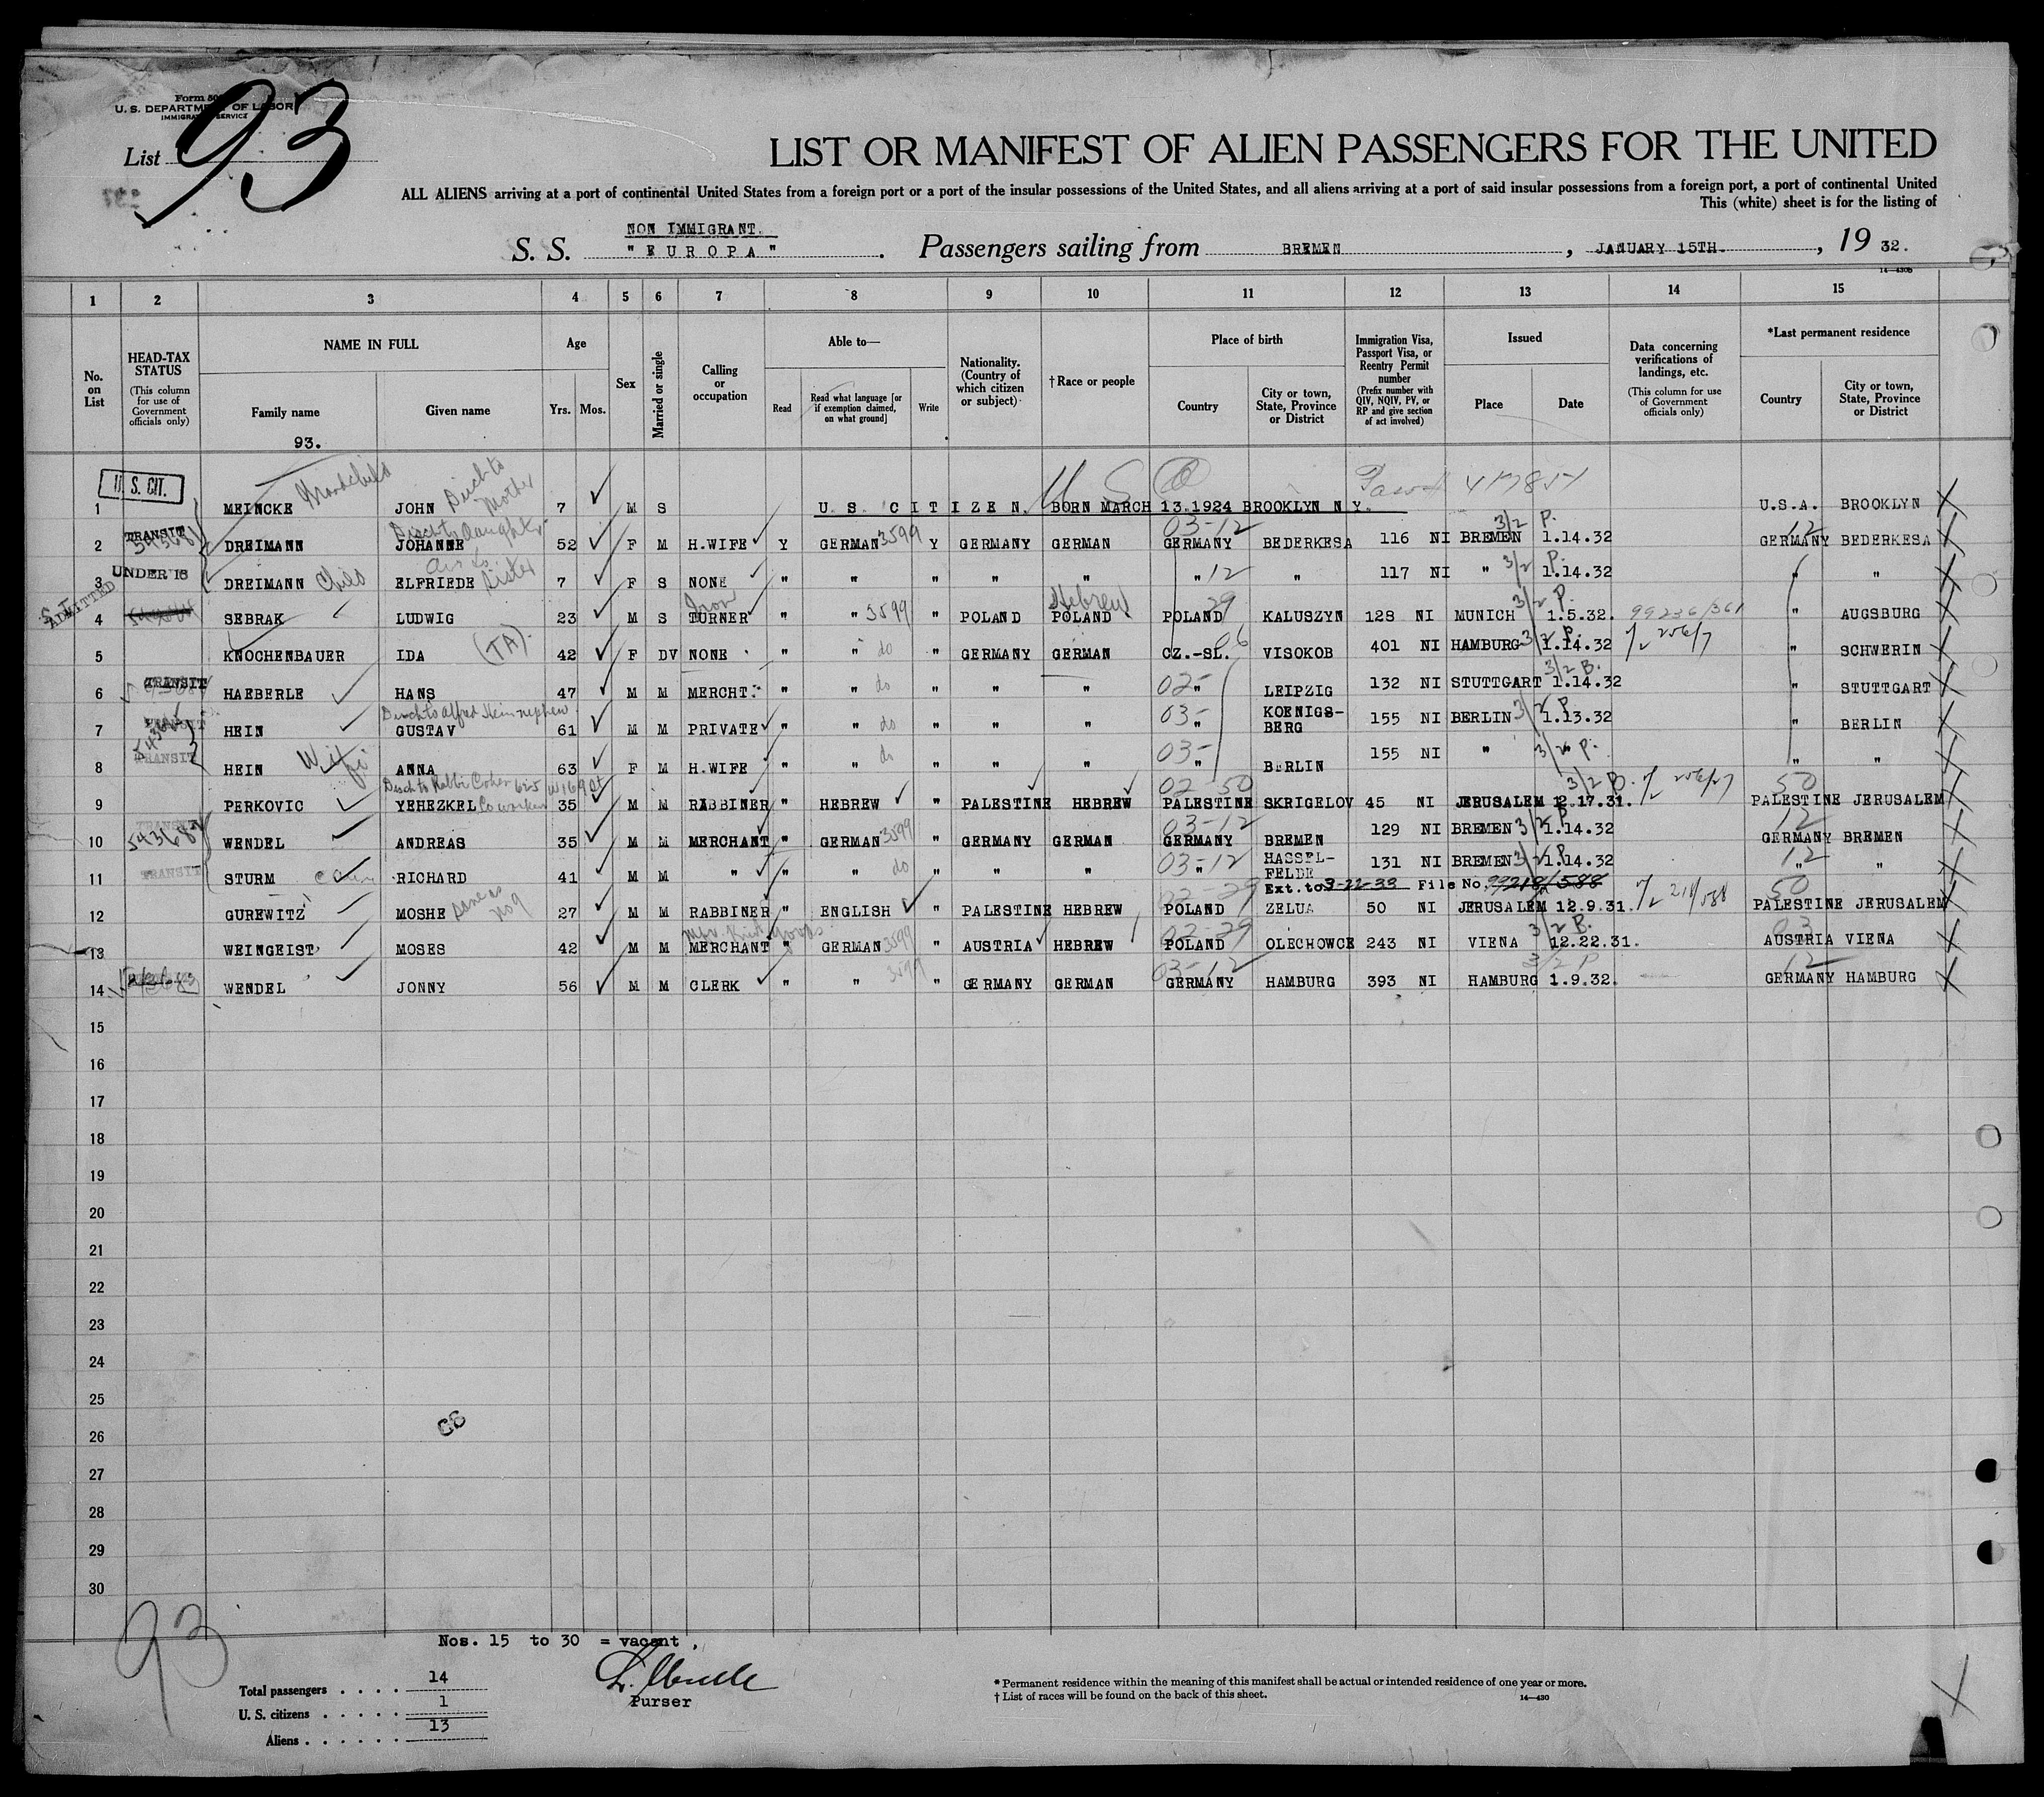 Form 50
U. S. DEPARTMENT OF LABOR
IMMIGRATION SERVICE
List 93
LIST OR MANIFEST OF ALIEN PASSENGERS FOR THE UNITED
ALL ALIENS arriving at a port of continental United States from a foreign port or a port of the insular possessions of the United States, and all aliens arriving at a port of said insular possessions from a foreign port, a port of continental United
This (white) sheet is for the listing of
NON IMMIGRANT.
S. S. "EUROPA". Passengers sailing from BREMEN, JANUARY 15TH., 19 32.
14—430B
1 2 3 4 5 6 7 8 9 10 11 12 13 14 15
No. on List
HEAD-TAX STATUS (This column for use of Government officials only)
NAME IN FULL
Family name
Given name
93.
Age
Yrs. Mos.
Sex
Married or single
Calling or occupation
Able to—
Read
Read what language [or if exemption claimed, on what ground]
Write
Nationality. (Country of which citizen or subject)
† Race or people
Place of birth
Country
City or town, State, Province or District
Immigration Visa, Passport Visa, or Reentry Permit number (Prefix number with QIV, NQIV, PV, or RP and give section of act involved)
Issued
Place
Date
Data concerning verifications of landings, etc. (This column for use of Government officials only)
*Last permanent residence
Country
City or town, State, Province or District
Grandchild Disch to Mother U S
1 U. S. CIT. MEINCKE JOHN 7 M S U. S. CITIZEN. BORN MARCH 13.1924 BROOKLYN N.Y. U.S.A. BROOKLYN
Disch to Daughter 03-12 3/2 P. 12
2 TRANSIT DREIMANN JOHANNE 52 F M H.WIFE Y GERMAN 3599 Y GERMANY GERMAN GERMANY BEDERKESA 116 NI BREMEN 1.14.32 GERMANY BEDERKESA
3 UNDER 16 DREIMANN Child ELFRIEDE Sister 7 F S NONE " " " " " " 12 " 117 NI " 3/2 P. 1.14.32 " "
S I ADMITTED Iron Hebrew 29 3/2 P.
4 SEBRAK LUDWIG 23 M S TURNER " " 3599 " POLAND POLAND POLAND KALUSZYN 128 NI MUNICH 1.5.32. 99236/361 " AUGSBURG
5 KNOCHENBAUER IDA (TA) 42 F DV NONE " " do " GERMANY GERMAN CZ.-SL. 06 VISOKOB 401 NI HAMBURG 3/2 P. 1.14.32 " SCHWERIN
6 TRANSIT HAEBERLE HANS 47 M M MERCHT. " " do " " " 02- " LEIPZIG 132 NI STUTTGART 3/2 B. 1.14.32 " STUTTGART
Disch to Alfred Hein nephew
7 HEIN GUSTAV 61 M M PRIVATE " " do " " " 03- " KOENIGS-BERG 155 NI BERLIN 3/2 P. 1.13.32 " BERLIN
8 TRANSIT HEIN Wife ANNA 63 F M H.WIFE " " do " " " 03- " BERLIN 155 NI " 3/2 P. " "
Disch to Rabbi Cohen 625 W 169 St 02-50 3/2 B. 50
9 PERKOVIC YEHEZKEL Co worker 35 M M RABBINER " HEBREW " PALESTINE HEBREW PALESTINE SKRIGELOV 45 NI JERUSALEM 12.17.31. PALESTINE JERUSALEM
TRANSIT 03-12 12
10 543687 WENDEL ANDREAS 35 M M MERCHANT " GERMAN 3599 " GERMANY GERMAN GERMANY BREMEN 129 NI BREMEN 3/2 P. 1.14.32 GERMANY BREMEN
11 TRANSIT STURM RICHARD 41 M M " " " do " " " 03-12 " HASSEL-FELDE 131 NI BREMEN 3/2 P. 1.14.32 12 " "
Ext. to 3-22-33 File No. 99218/588
12 GUREWITZ MOSHE same as no 9 27 M M RABBINER " ENGLISH " PALESTINE HEBREW 02-29 POLAND ZELUA 50 NI JERUSALEM 12.9.31. 218/588 50 PALESTINE JERUSALEM
13 WEINGEIST MOSES 42 M M MERCHANT " GERMAN 3599 " AUSTRIA HEBREW 02-29 POLAND OLECHOWCE 243 NI VIENA 3/2 B. 12.22.31. 03 AUSTRIA VIENA
14 WENDEL JONNY 56 M M CLERK " " 3599 " GERMANY GERMAN 03-12 GERMANY HAMBURG 393 NI HAMBURG 3/2 P 1.9.32. 12 GERMANY HAMBURG
15
16
17
18
19
20
21
22
23
24
25
26
27
28
29
30
93
Nos. 15 to 30 = vacant,
Total passengers . . . . 14
U. S. citizens . . . . . 1
Aliens . . . . . . 13
Purser
* Permanent residence within the meaning of this manifest shall be actual or intended residence of one year or more.
† List of races will be found on the back of this sheet. 14—430